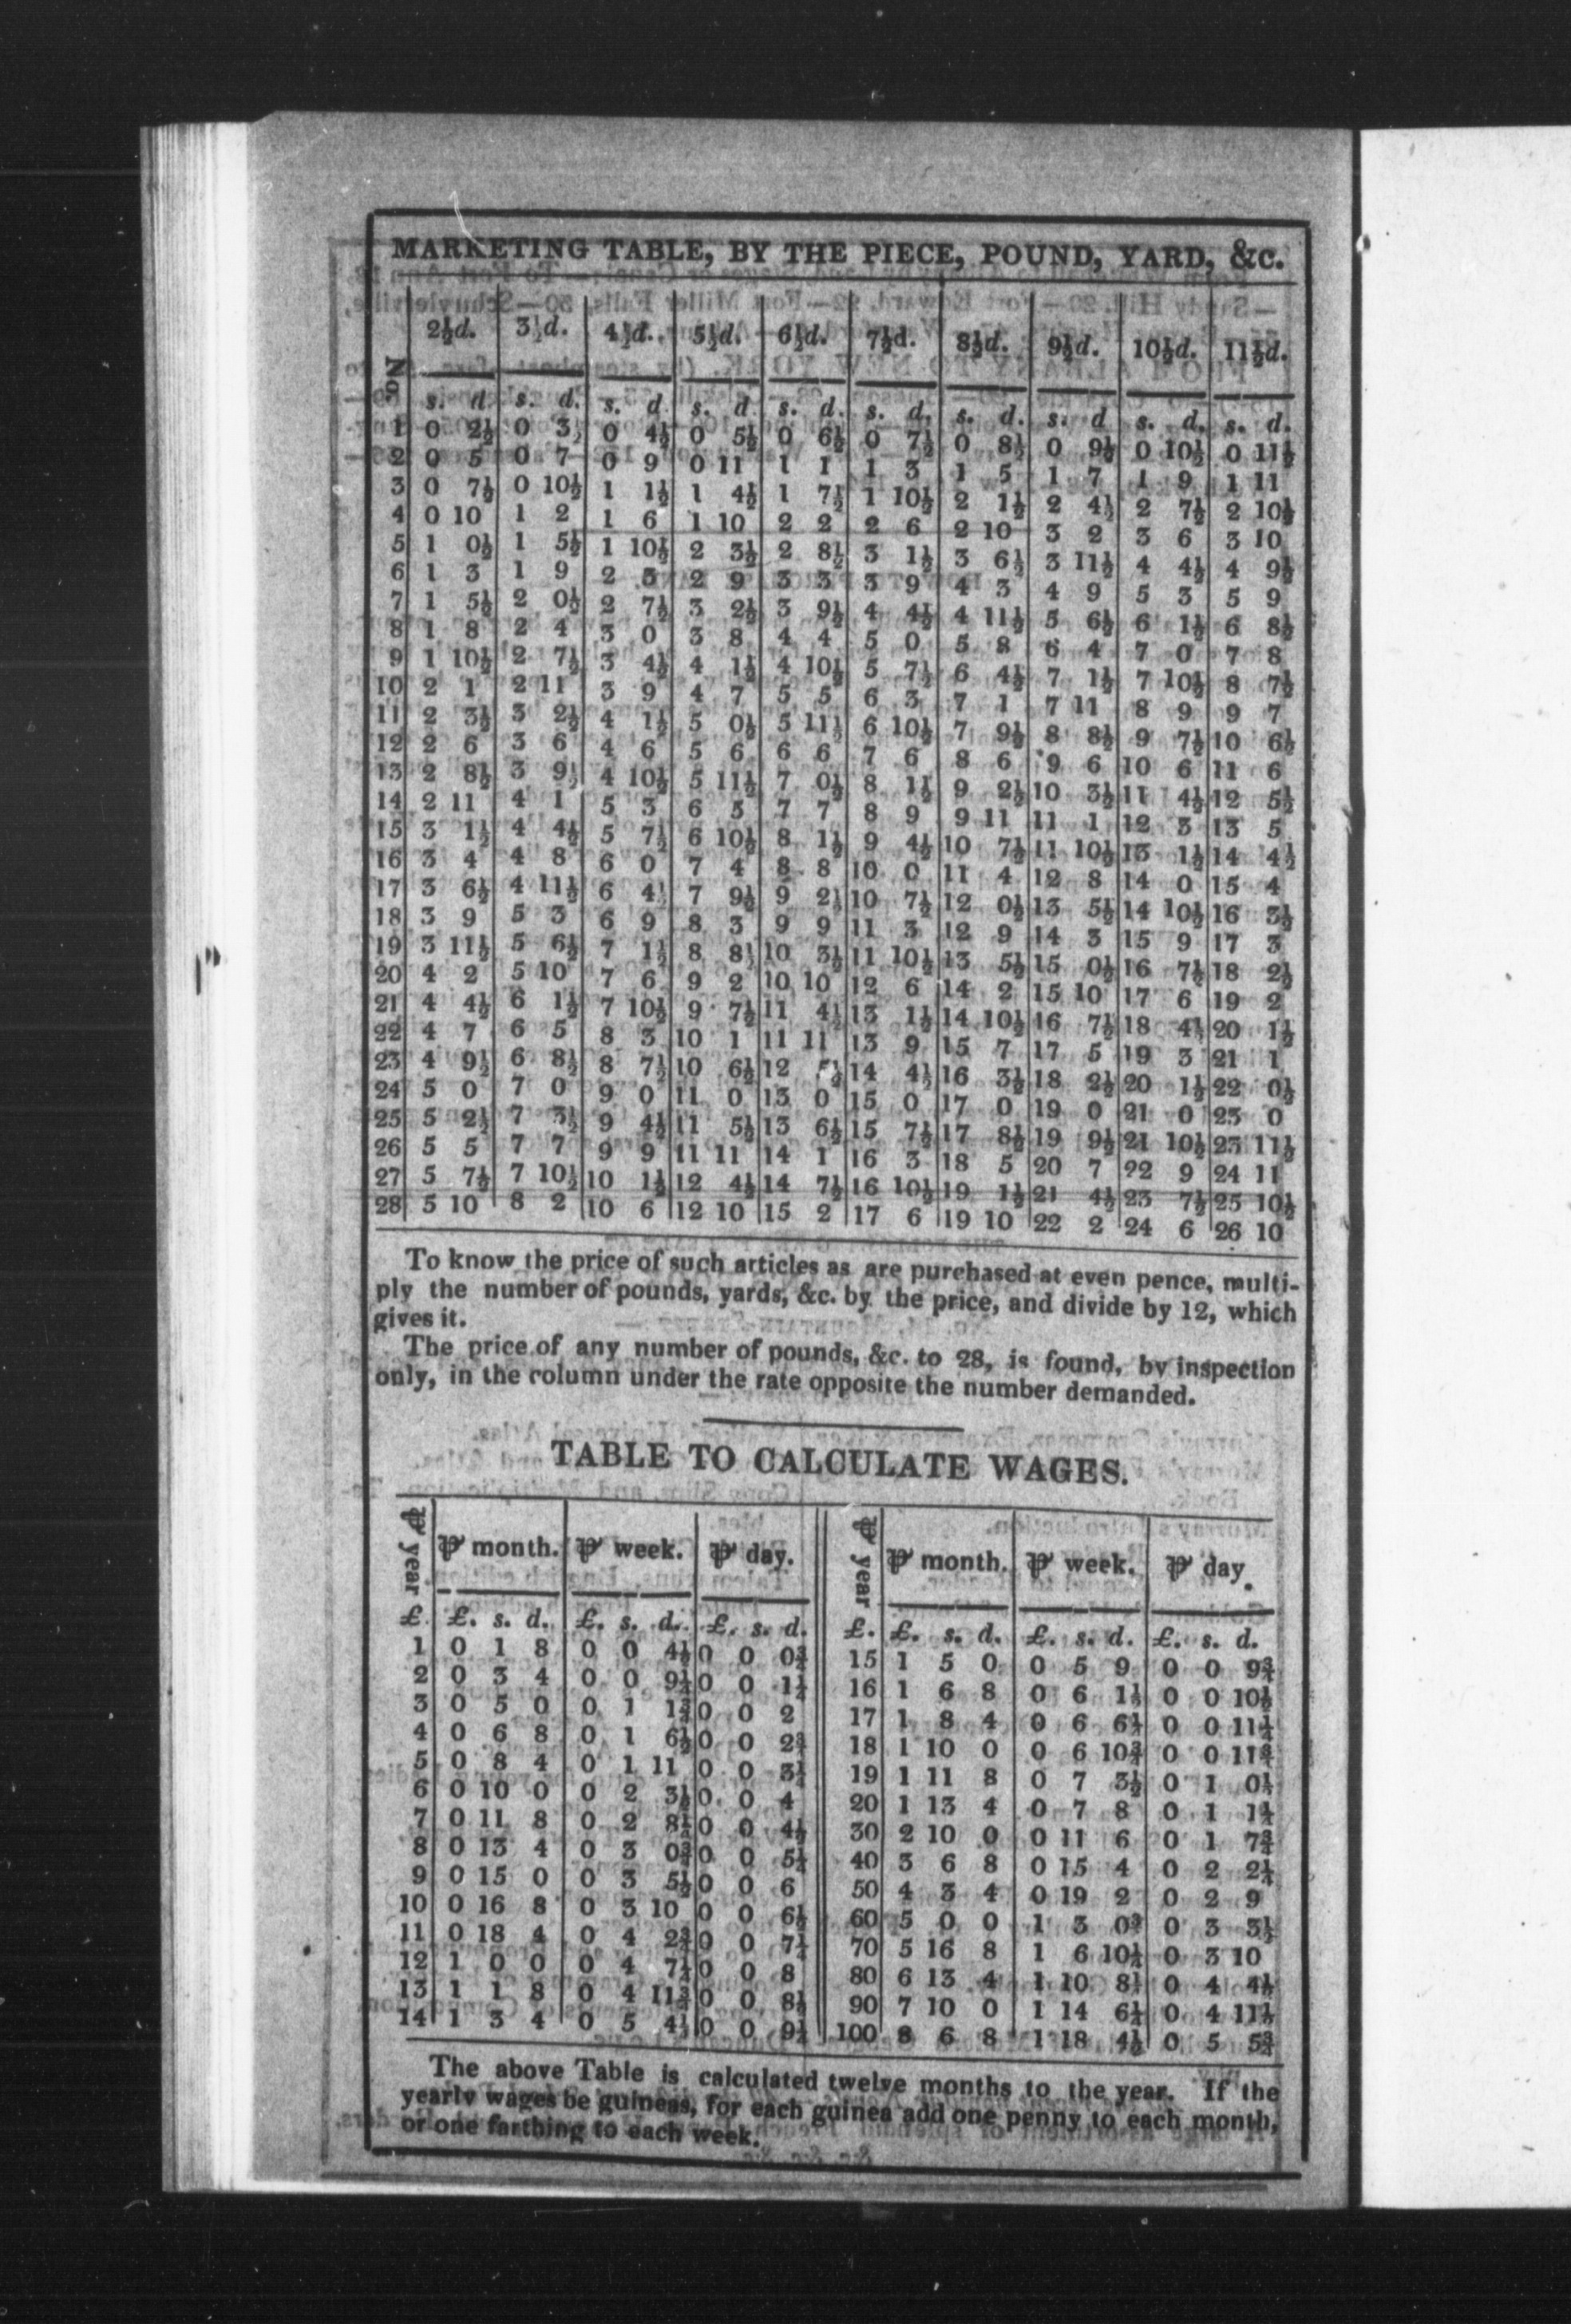 MARKETING TABLE, BY THE PIECE, POUND, YARD, &c.
No. 2½d. 3½d. 4½d. 5½d. 6½d. 7½d. 8½d. 9½d. 10½d. 11½d.
s. d. s. d. s. d. s. d. s. d. s. d. s. d. s. d s. d. s. d.
1 0 2½ 0 3½ 0 4½ 0 5½ 0 6½ 0 7½ 0 8½ 0 9½ 0 10½ 0 11½
2 0 5 0 7 0 9 0 11 1 1 1 3 1 5 1 7 1 9 1 11
3 0 7½ 0 10½ 1 1½ 1 4½ 1 7½ 1 10½ 2 1½ 2 4½ 2 7½ 2 10½
4 0 10 1 2 1 6 1 10 2 2 2 6 2 10 3 2 3 6 3 10
5 1 0½ 1 5½ 1 10½ 2 3½ 2 8½ 3 1½ 3 6½ 3 11½ 4 4½ 4 9½
6 1 3 1 9 2 3 2 9 3 3 3 9 4 3 4 9 5 3 5 9
7 1 5½ 2 0½ 2 7½ 3 2½ 3 9½ 4 4½ 4 11½ 5 6½ 6 1½ 6 8½
8 1 8 2 4 3 0 3 8 4 4 5 0 5 8 6 4 7 0 7 8
9 1 10½ 2 7½ 3 4½ 4 1½ 4 10½ 5 7½ 6 4½ 7 1½ 7 10½ 8 7½
10 2 1 2 11 3 9 4 7 5 5 6 3 7 1 7 11 8 9 9 7
11 2 3½ 3 2½ 4 1½ 5 0½ 5 11½ 6 10½ 7 9½ 8 8½ 9 7½ 10 6½
12 2 6 3 6 4 6 5 6 6 6 7 6 8 6 9 6 10 6 11 6
13 2 8½ 3 9½ 4 10½ 5 11½ 7 0½ 8 1½ 9 2½ 10 3½ 11 4½ 12 5½
14 2 11 4 1 5 3 6 5 7 7 8 9 9 11 11 1 12 3 13 5
15 3 1½ 4 4½ 5 7½ 6 10½ 8 1½ 9 4½ 10 7½ 11 10½ 13 1½ 14 4½
16 3 4 4 8 6 0 7 4 8 8 10 0 11 4 12 8 14 0 15 4
17 3 6½ 4 11½ 6 4½ 7 9½ 9 2½ 10 7½ 12 0½ 13 5½ 14 10½ 16 3½
18 3 9 5 3 6 9 8 3 9 9 11 3 12 9 14 3 15 9 17 3
19 3 11½ 5 6½ 7 1½ 8 8½ 10 3½ 11 10½ 13 5½ 15 0½ 16 7½ 18 2½
20 4 2 5 10 7 6 9 2 10 10 12 6 14 2 15 10 17 6 19 2
21 4 4½ 6 1½ 7 10½ 9 7½ 11 4½ 13 1½ 14 10½ 16 7½ 18 4½ 20 1½
22 4 7 6 5 8 3 10 1 11 11 13 9 15 7 17 5 19 3 21 1
23 4 9½ 6 8½ 8 7½ 10 6½ 12 5½ 14 4½ 16 3½ 18 2½ 20 1½ 22 0½
24 5 0 7 0 9 0 11 0 13 0 15 0 17 0 19 0 21 0 23 0
25 5 2½ 7 3½ 9 4½ 11 5½ 13 6½ 15 7½ 17 8½ 19 9½ 21 10½ 23 11½
26 5 5 7 7 9 9 11 11 14 1 16 3 18 5 20 7 22 9 24 11
27 5 7½ 7 10½ 10 1½ 12 4½ 14 7½ 16 10½ 19 1½ 21 4½ 23 7½ 25 10½
28 5 10 8 2 10 6 12 10 15 2 17 6 19 10 22 2 24 6 26 10
To know the price of such articles as are purchased at even pence, multi-
ply the number of pounds, yards, &c. by the price, and divide by 12, which
gives it.
The price of any number of pounds, &c. to 28, is found, by inspection
only, in the column under the rate opposite the number demanded.
TABLE TO CALCULATE WAGES.
⅌ year ⅌ month. ⅌ week. ⅌ day.
£ £. s. d. £. s. d. £. s. d.
1 0 1 8 0 0 4½ 0 0 0¾
2 0 3 4 0 0 9¼ 0 0 1¼
3 0 5 0 0 1 1¾ 0 0 2
4 0 6 8 0 1 6½ 0 0 2¾
5 0 8 4 0 1 11 0 0 3¼
6 0 10 0 0 2 3½ 0 0 4
7 0 11 8 0 2 8¼ 0 0 4½
8 0 13 4 0 3 0¾ 0 0 5¼
9 0 15 0 0 3 5½ 0 0 6
10 0 16 8 0 3 10 0 0 6½
11 0 18 4 0 4 2¾ 0 0 7¼
12 1 0 0 0 4 7¼ 0 0 8
13 1 1 8 0 4 11¾ 0 0 8½
14 1 3 4 0 5 4½ 0 0 9¼
⅌ year ⅌ month. ⅌ week. ⅌ day.
£. £. s. d. £. s. d. £. s. d.
15 1 5 0 0 5 9 0 0 9¾
16 1 6 8 0 6 1½ 0 0 10½
17 1 8 4 0 6 6¼ 0 0 11¼
18 1 10 0 0 6 10¾ 0 0 11¾
19 1 11 8 0 7 3½ 0 1 0½
20 1 13 4 0 7 8 0 1 1¼
30 2 10 0 0 11 6 0 1 7¾
40 3 6 8 0 15 4 0 2 2¼
50 4 3 4 0 19 2 0 2 9
60 5 0 0 1 3 0¾ 0 3 3½
70 5 16 8 1 6 10¼ 0 3 10
80 6 13 4 1 10 8¼ 0 4 4½
90 7 10 0 1 14 6¼ 0 4 11¼
100 8 6 8 1 18 4½ 0 5 5¾
The above Table is calculated twelve months to the year. If the
yearly wages be guineas, for each guinea add one penny to each month,
or one farthing to each week.